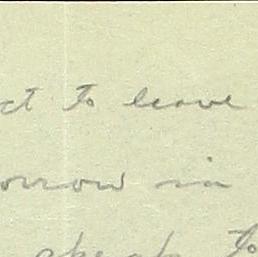 ct to leave
orrow in
speak to